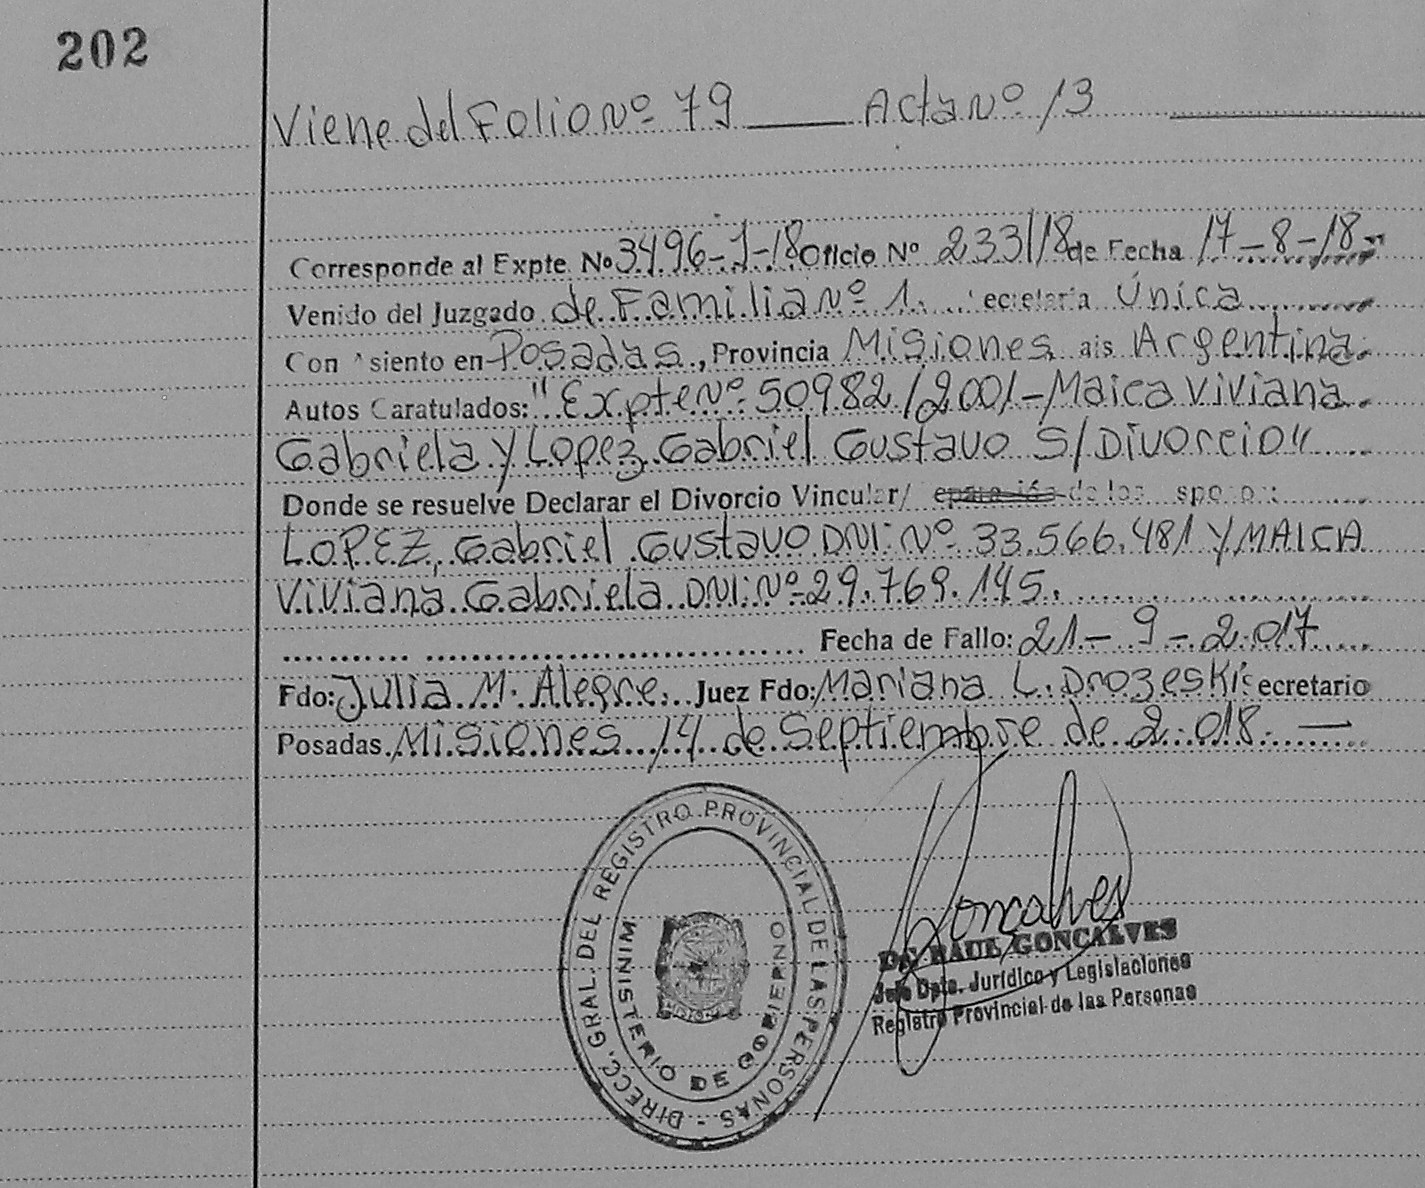 202
Viene del Folio Nº 79 ____ Acta Nº 13 ____
Corresponde al Expte. Nº 3496-J-18 Oficio Nº 2331/18 de Fecha 17-8-18
Venido del Juzgado de Familia Nº 1. ecretaria Única
Con siento en Posadas, Provincia Misiones ais Argentina.
Autos Caratulados: "Expte Nº 50982/2001-Maica Viviana
Gabriela y Lopez Gabriel Gustavo S/Divorcio"
Donde se resuelve Declarar el Divorcio Vincular/ de los
LOPEZ, Gabriel Gustavo DNI: Nº 33.566.481 Y MAICA
Viviana Gabriela DNI: Nº 29.769.145.
Fecha de Fallo: 21-9-2.017
Fdo: Julia M. Alegre. Juez Fdo: Mariana L. Drozeski ecretario
Posadas, Misiones 14 de Septiembre de 2.018.—
DIRECC. GRAL. DEL REGISTRO PROVINCIAL DE LAS PERSONAS -
MINISTERIO DE GOBIERNO
Goncalves
RAUL GONCALVES
Jefe Dpto. Jurídico y Legislaciones
Registro Provincial de las Personas